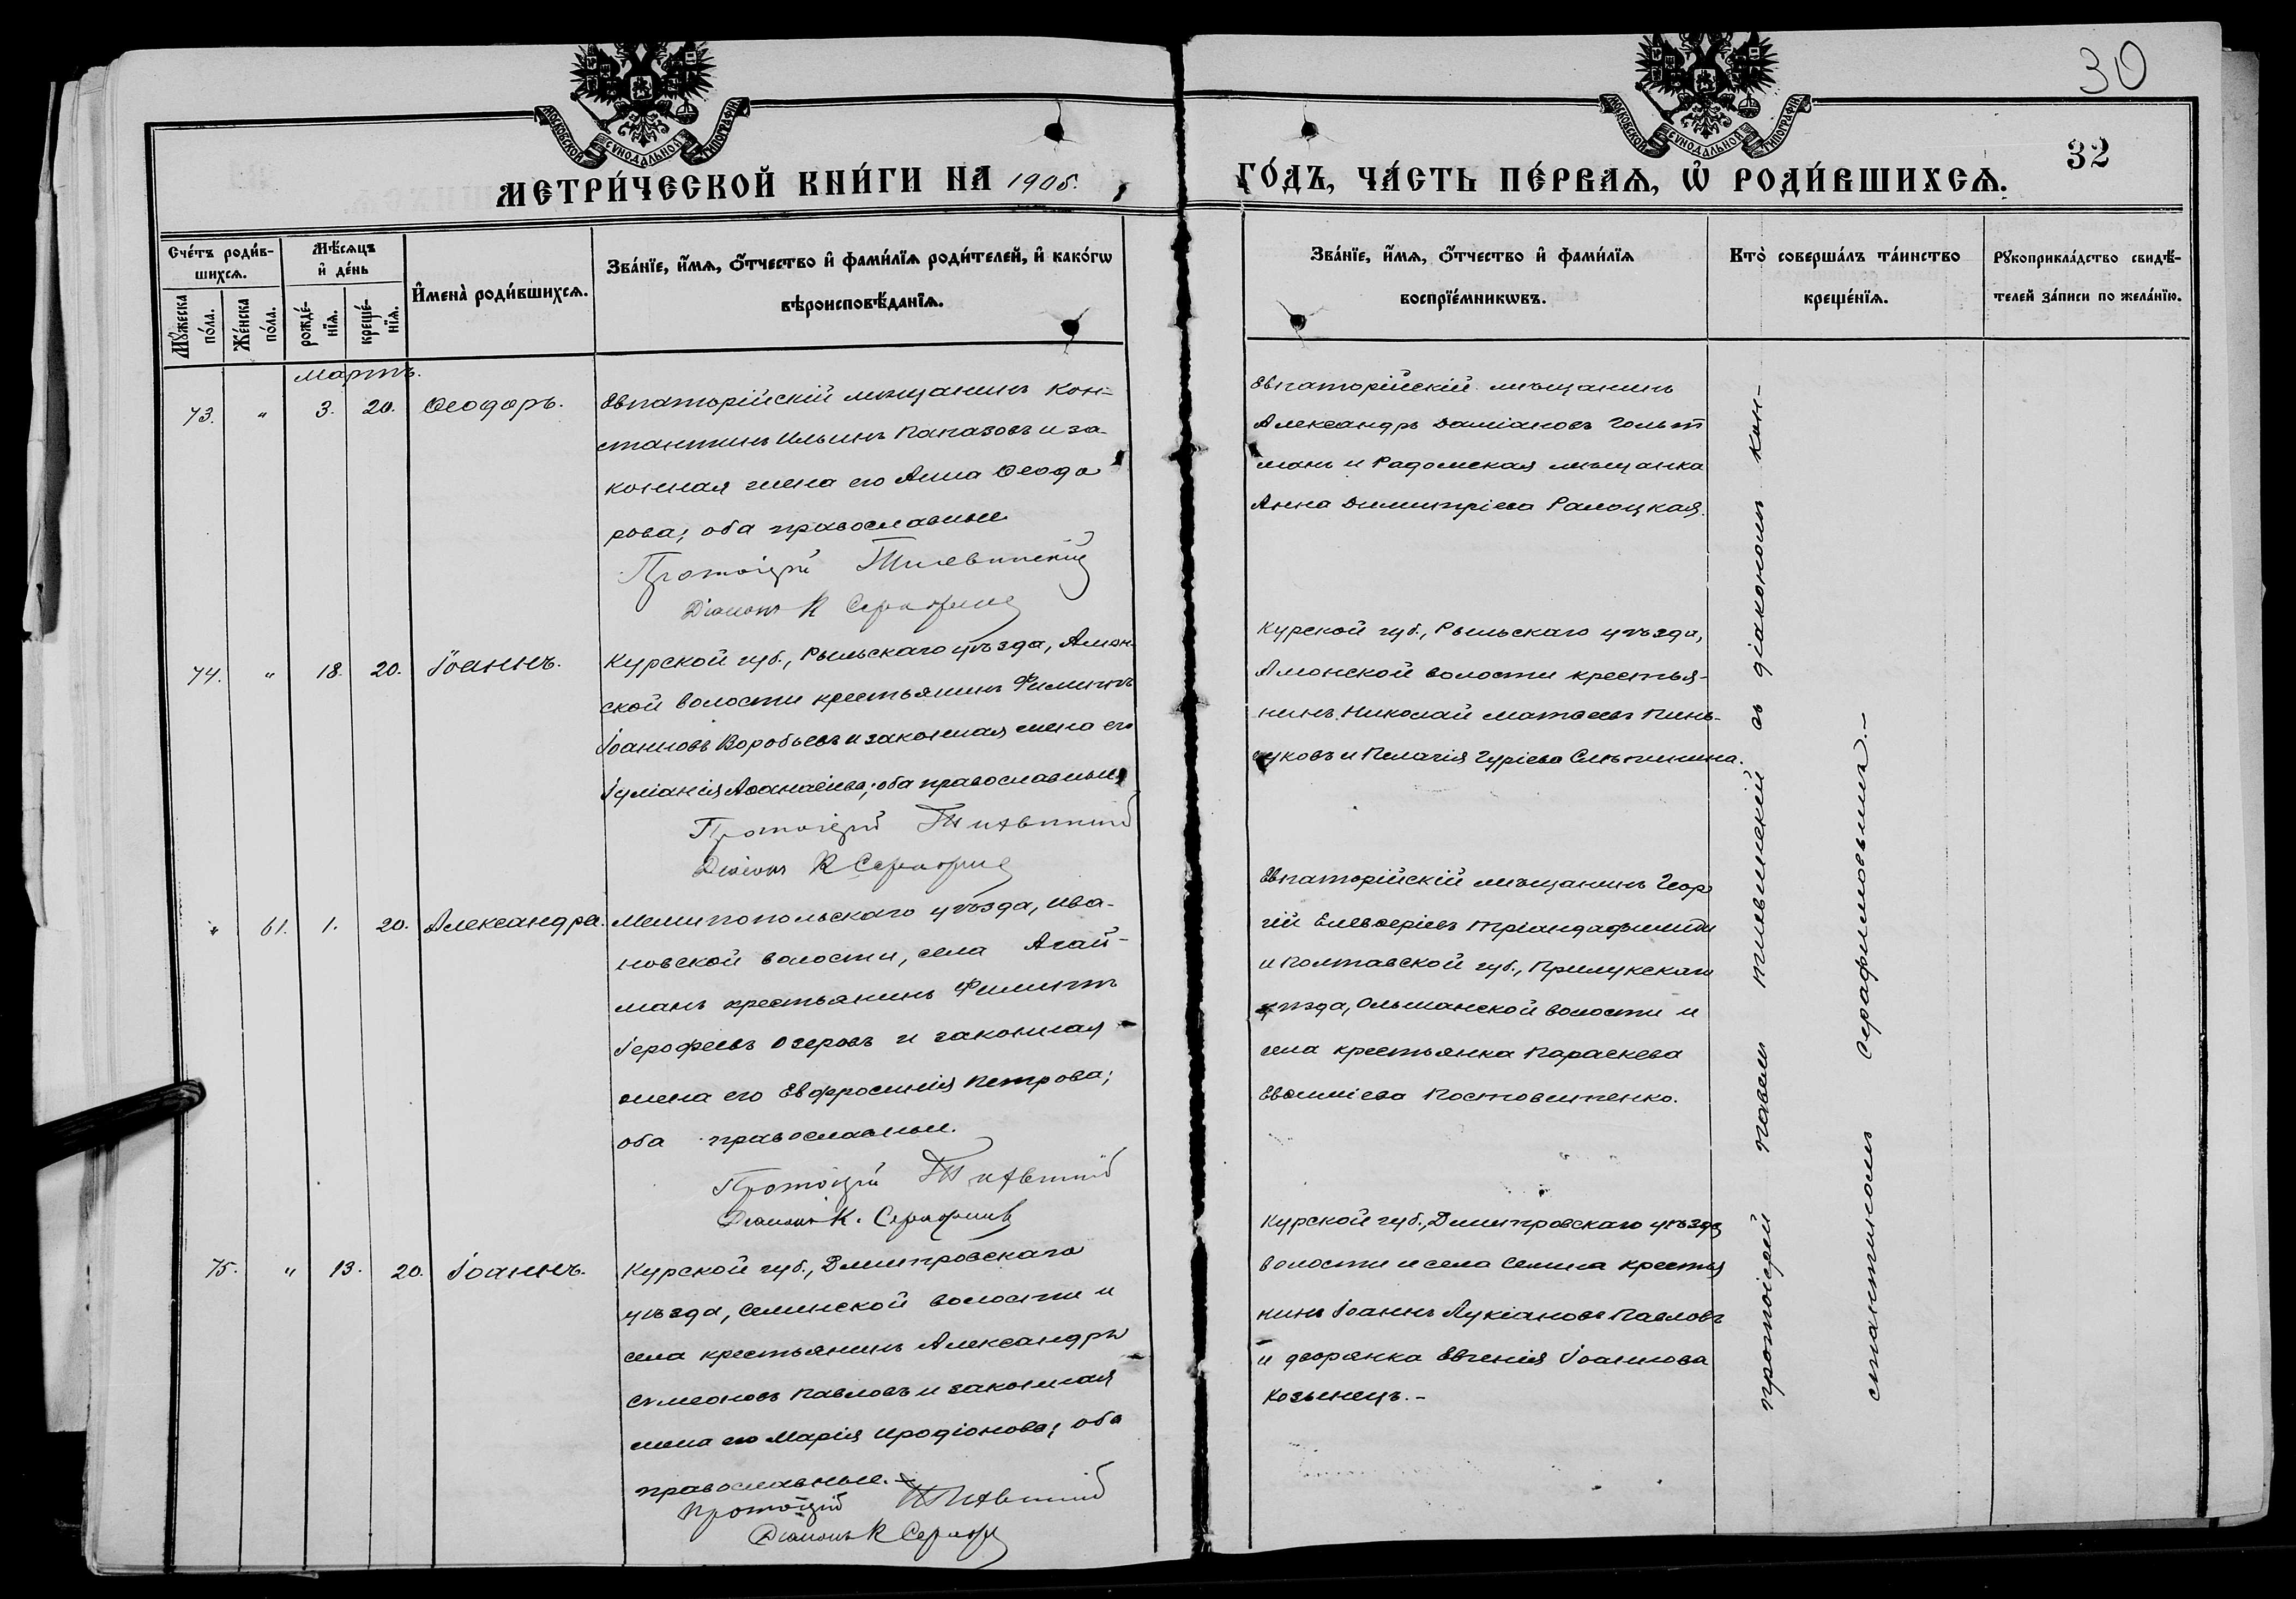 30
32
МОСКОВСКОЙ СУНОДАЛЬНОЙ ТИПОГРАФІИ
МОСКОВСКОЙ СУНОДАЛЬНОЙ ТИПОГРАФІИ
МЕТРИ́ЧЕСКОЙ КНИ́ГИ НА 1905.
ГО́ДЪ, ЧА́СТЬ ПЕ́РВАѦ, Ѡ҆ РОДИ́ВШИХСѦ.
Сче́тъ роди́в-
шихсѧ.
Мꙋ́жеска по́ла.
Же́нска по́ла.
Мѣ́сѧцъ
и҆ де́нь
рожде́-
нїѧ.
креще́-
нїѧ.
И҆мена̀ роди́вшихсѧ.
Зва́нїе, и҆́мѧ, ѻ҆́тчество и҆ фами́лїѧ роди́телей, и҆ како́гѡ
вѣроисповѣ́данїѧ.
Зва́нїе, и҆́мѧ, ѻ҆́тчество и҆ фами́лїѧ
воспрїе́мникѡвъ.
Кто̀ соверша́лъ та́инство
креще́нїѧ.
Рꙋкоприкла́дство свидѣ́-
телей за́писи по жела́нїю.
Мартъ.
73. " 3. 20. Ѳеодоръ.
Евпаторійскій мѣщанинъ Кон-
стантинъ Ильинъ Папазовъ и за-
конная жена его Анна Ѳеодо
рова; оба православные
Протоіерей Тилевинскій
Діаконъ К Серафимов
Евпаторійскій мѣщанинъ
Александръ Даміановъ Гольт
манъ и Радомская мѣщанка
Анна Димитріева Рамоцкая.
74. " 18. 20. Іоаннъ.
Курской губ., Рыльскаго уѣзда, Амон
ской волости крестьянинъ Филиппъ
Іоанновъ Воробьевъ и законная жена его
Іуліанія Аѳанасіева; оба православные
Протоіерей
Діаконъ К Серафимов
Курской губ., Рыльскаго уѣзда,
Амонской волости крестья-
нинъ Николай Матѳеевъ Пинь-
чуковъ и Пелагія Гуріева
" 61. 1. 20. Александра.
Мелитопольскаго уѣзда, Ива-
новской волости, села Агай-
манъ крестьянинъ Филиппъ
Іероѳеевъ Озеровъ и законная
жена его Евфросинія Петрова;
оба православные.
Протоіерей
Діаконъ К. Серафимов
Евпаторійскій мѣщанинъ Геор
гій Елевѳеріевъ Тріандафилиди
и Полтавской губ., Прилукскаго
уѣзда, Ольшанской волости и
села крестьянка Параскева
Евѳиміева Постовитенко.
75. " 13. 20. Іоаннъ.
Курской губ., Дмитровскаго
уѣзда, Селинской волости и
села крестьянинъ Александръ
Симеоновъ Павловъ и законная
жена его Марія Иродіонова; оба
православные.—
Протоіерей
Діаконъ К Серафимов
Курской губ., Дмитровскаго уѣзда
волости и села Селина крестья
нинъ Іоаннъ Лукіановъ Павловъ
и дворянка Евгенія Іоаннова
Козынецъ.-
протоіерей Павелъ Тилевинскій съ діакономъ Кон-
стантиномъ Серафимовымъ.—